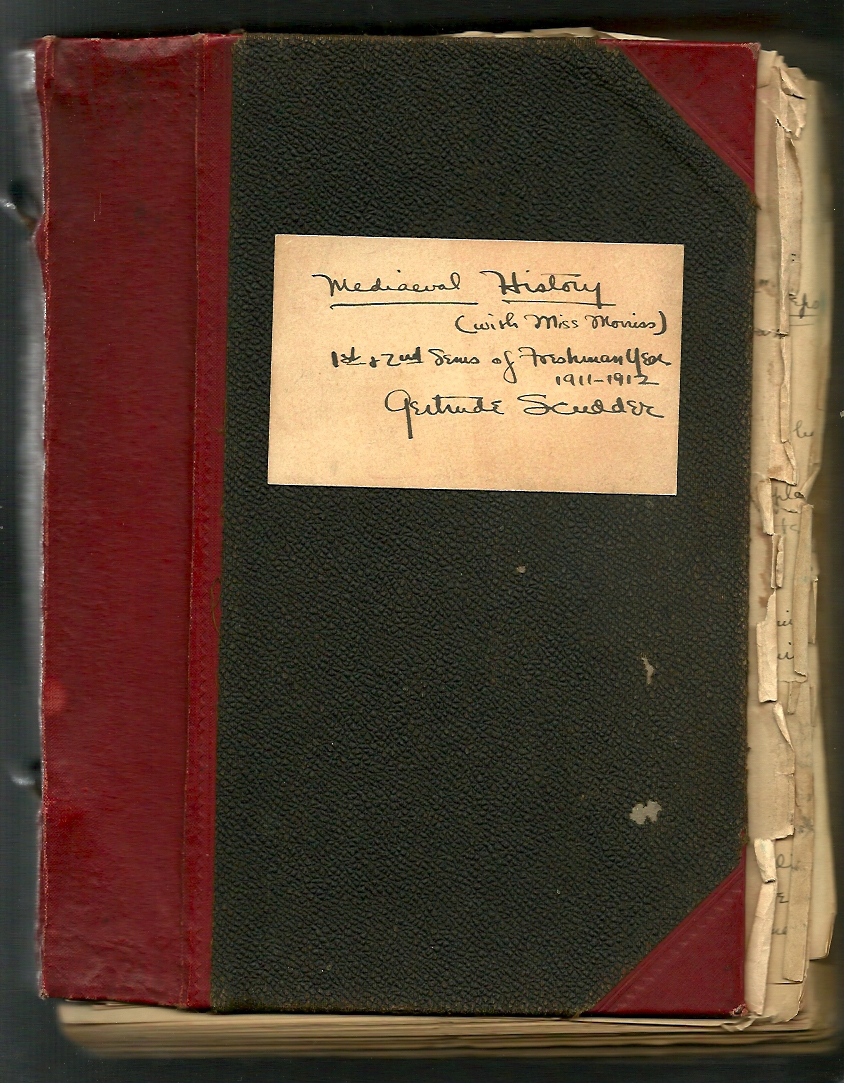 Mediaeval History
(with Miss Morriss)
1st & 2nd Sems of Freshman Year
1911-1912
Gertrude Scudder